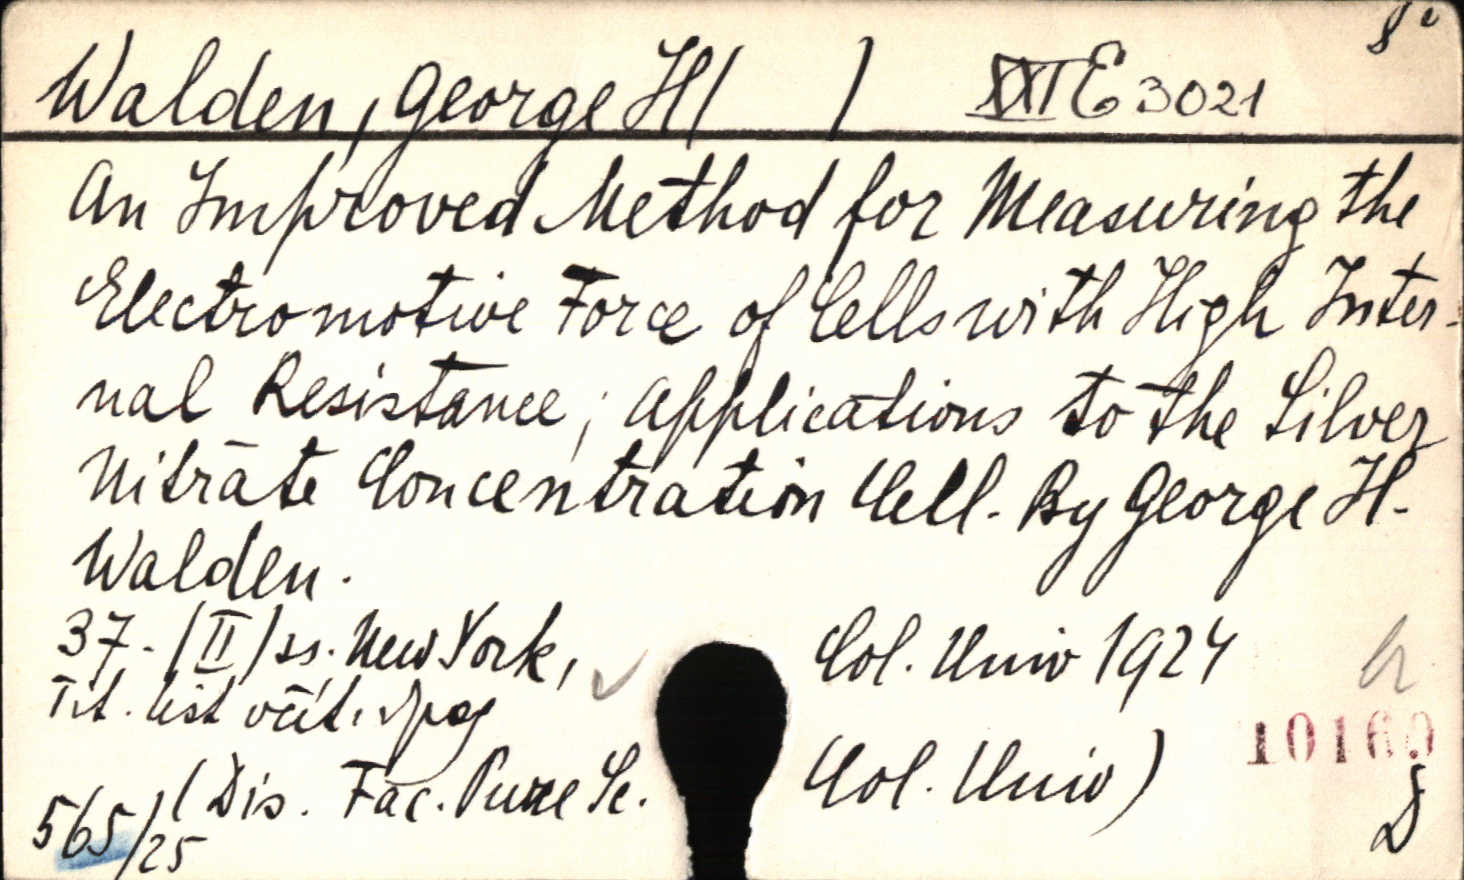 8°
Walden, George H( ) XXI E 3021
An Improved Method for Measuring the
Electromotive Force of Cells with High Inter-
nal Resistance; Applications to the Silver
Nitrate Concentration Cell. By George H.
Walden.
37.-(II) ss. New York, Col. Univ 1924
Tit. list včít. v pag
10160
(Dis. Fac. Pure Sc. Col. Univ)
565/25